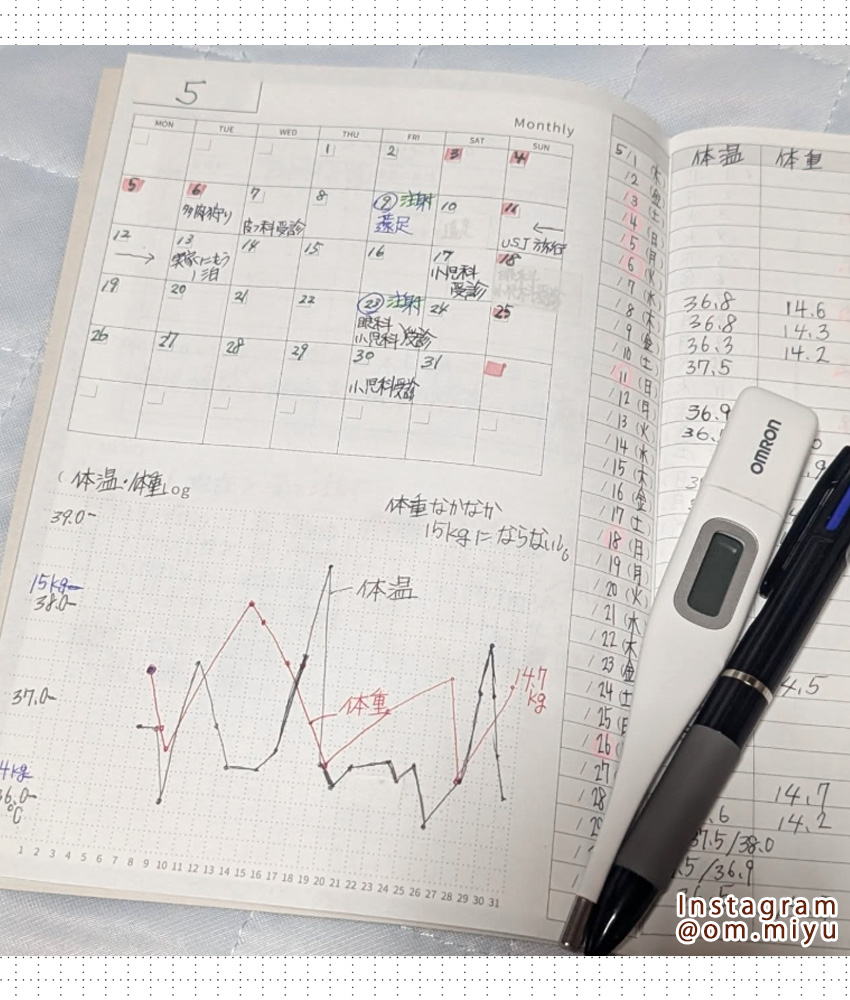 5
Monthly
MON TUE WED THU FRI SAT SUN
1 2 3 4
5 6 7 8 9 注射 10 11
狩り 皮フ科受診 遠足 USJ旅行
12 13 14 15 16 17 18
実家にもう1泊 小児科受診
19 20 21 22 23 注射 24 25
眼科 小児科 受診
26 27 28 29 30 31
小児科受診
体温・体重Log
体重なかなか
15kgにならない
39.0
15kg
38.0
体温
37.0
体重
14.7kg
4kg
36.0
℃
1 2 3 4 5 6 7 8 9 10 11 12 13 14 15 16 17 18 19 20 21 22 23 24 25 26 27 28 29 30 31
体温 体重
5/1 (木)
/2 (金)
/3 (土)
/4 (日)
/5 (月)
/6 (火)
/7 (水)
/8 (木) 36.8 14.6
/9 (金) 36.8 14.3
/10 (土) 36.3 14.2
/11 (日) 37.5
/12 (月)
/13 (火) 36.9
/14 (水) 36.
/15 (木)
/16 (金)
/17 (土)
/18 (日)
/19 (月)
/20 (火)
/21 (水
/22 (木
/23 (金
/24 (土 4.5
/25 (日
/26 (
/27
/28 14.7
.6 14.2
37.5/38.0
.5/36.9
OMRON
Instagram
@om.miyu